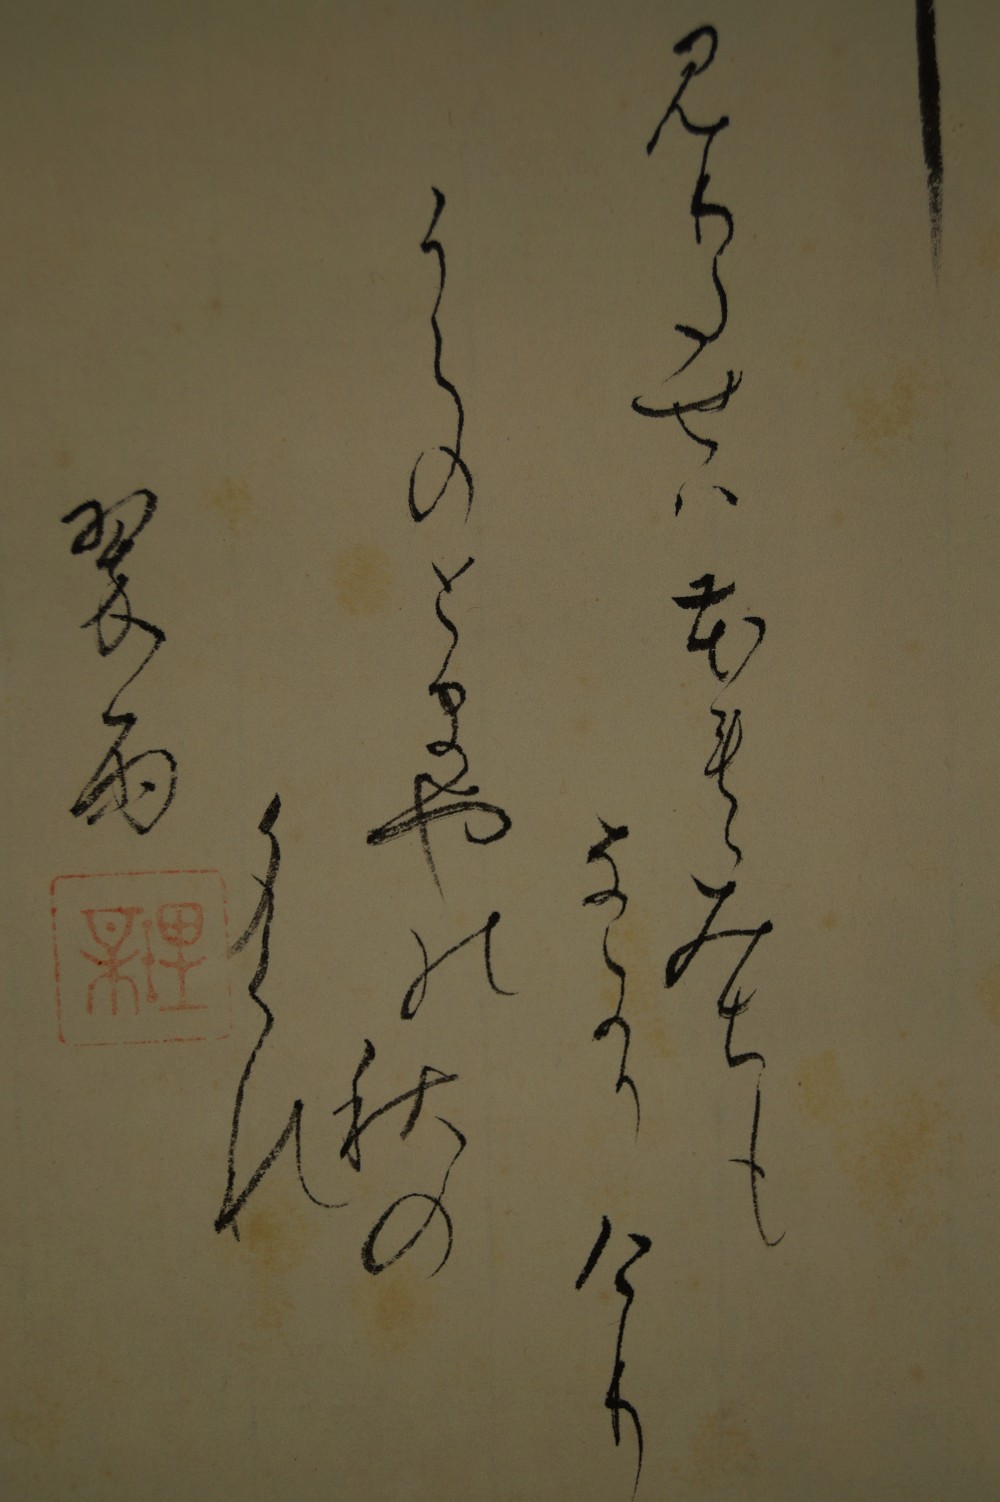 見わたせハ花もゝみちも
なかりけり
うらのとまやの秋の
夕くれ
翠雨